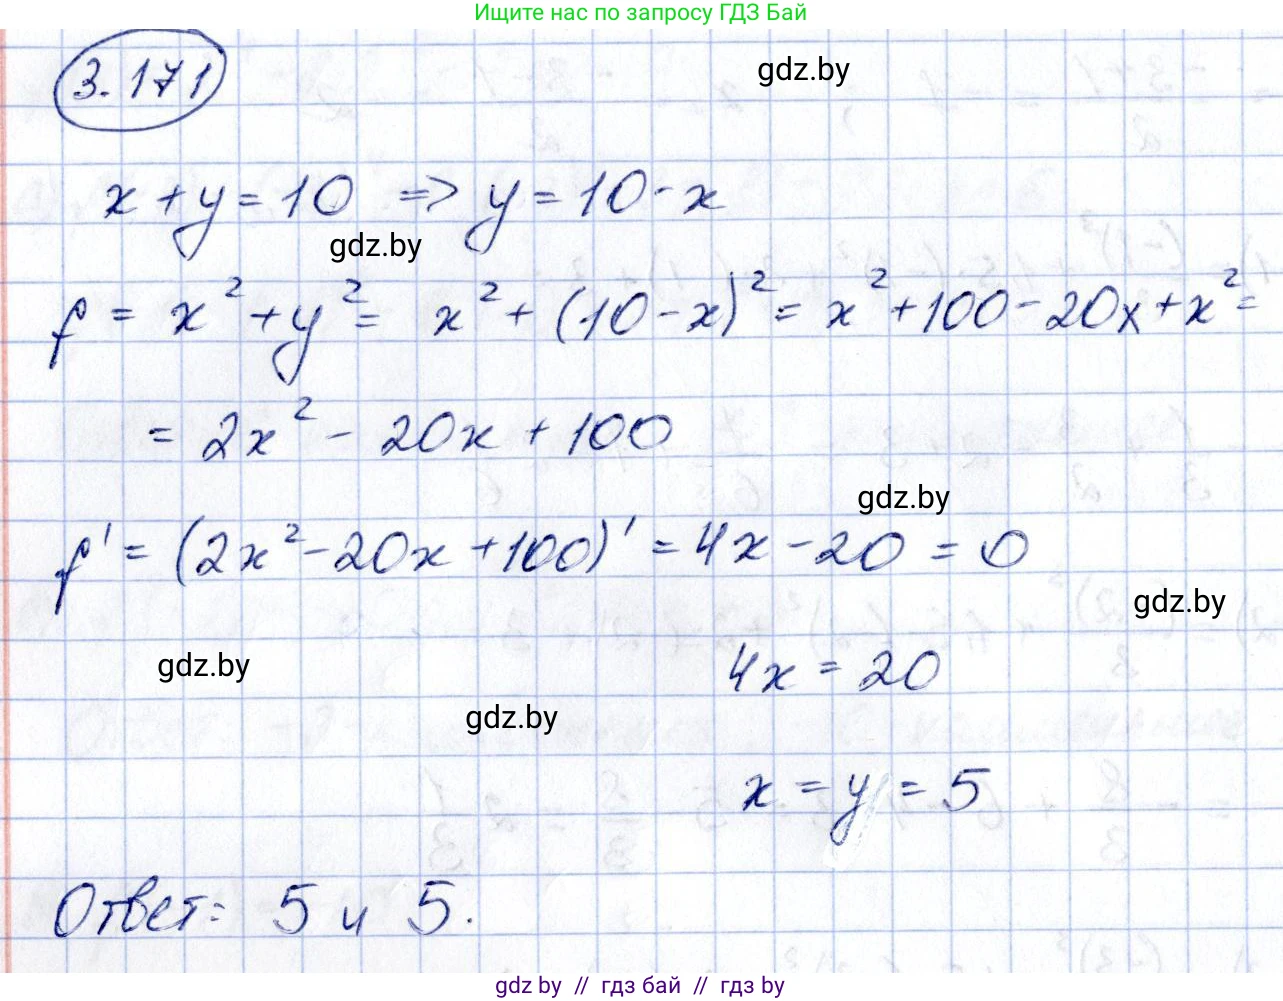 Ищите нас по запросу ГДЗ Бай
3.171
gdz.by
x + y = 10 => y = 10 - x
gdz.by
f = x² + y² = x² + (10 - x)² = x² + 100 - 20x + x² =
= 2x² - 20x + 100
gdz.by
f' = (2x² - 20x + 100)' = 4x - 20 = 0
gdz.by
4x = 20
gdz.by
gdz.by
x = y = 5
Ответ: 5 и 5.
gdz.by // гдз бай // гдз by